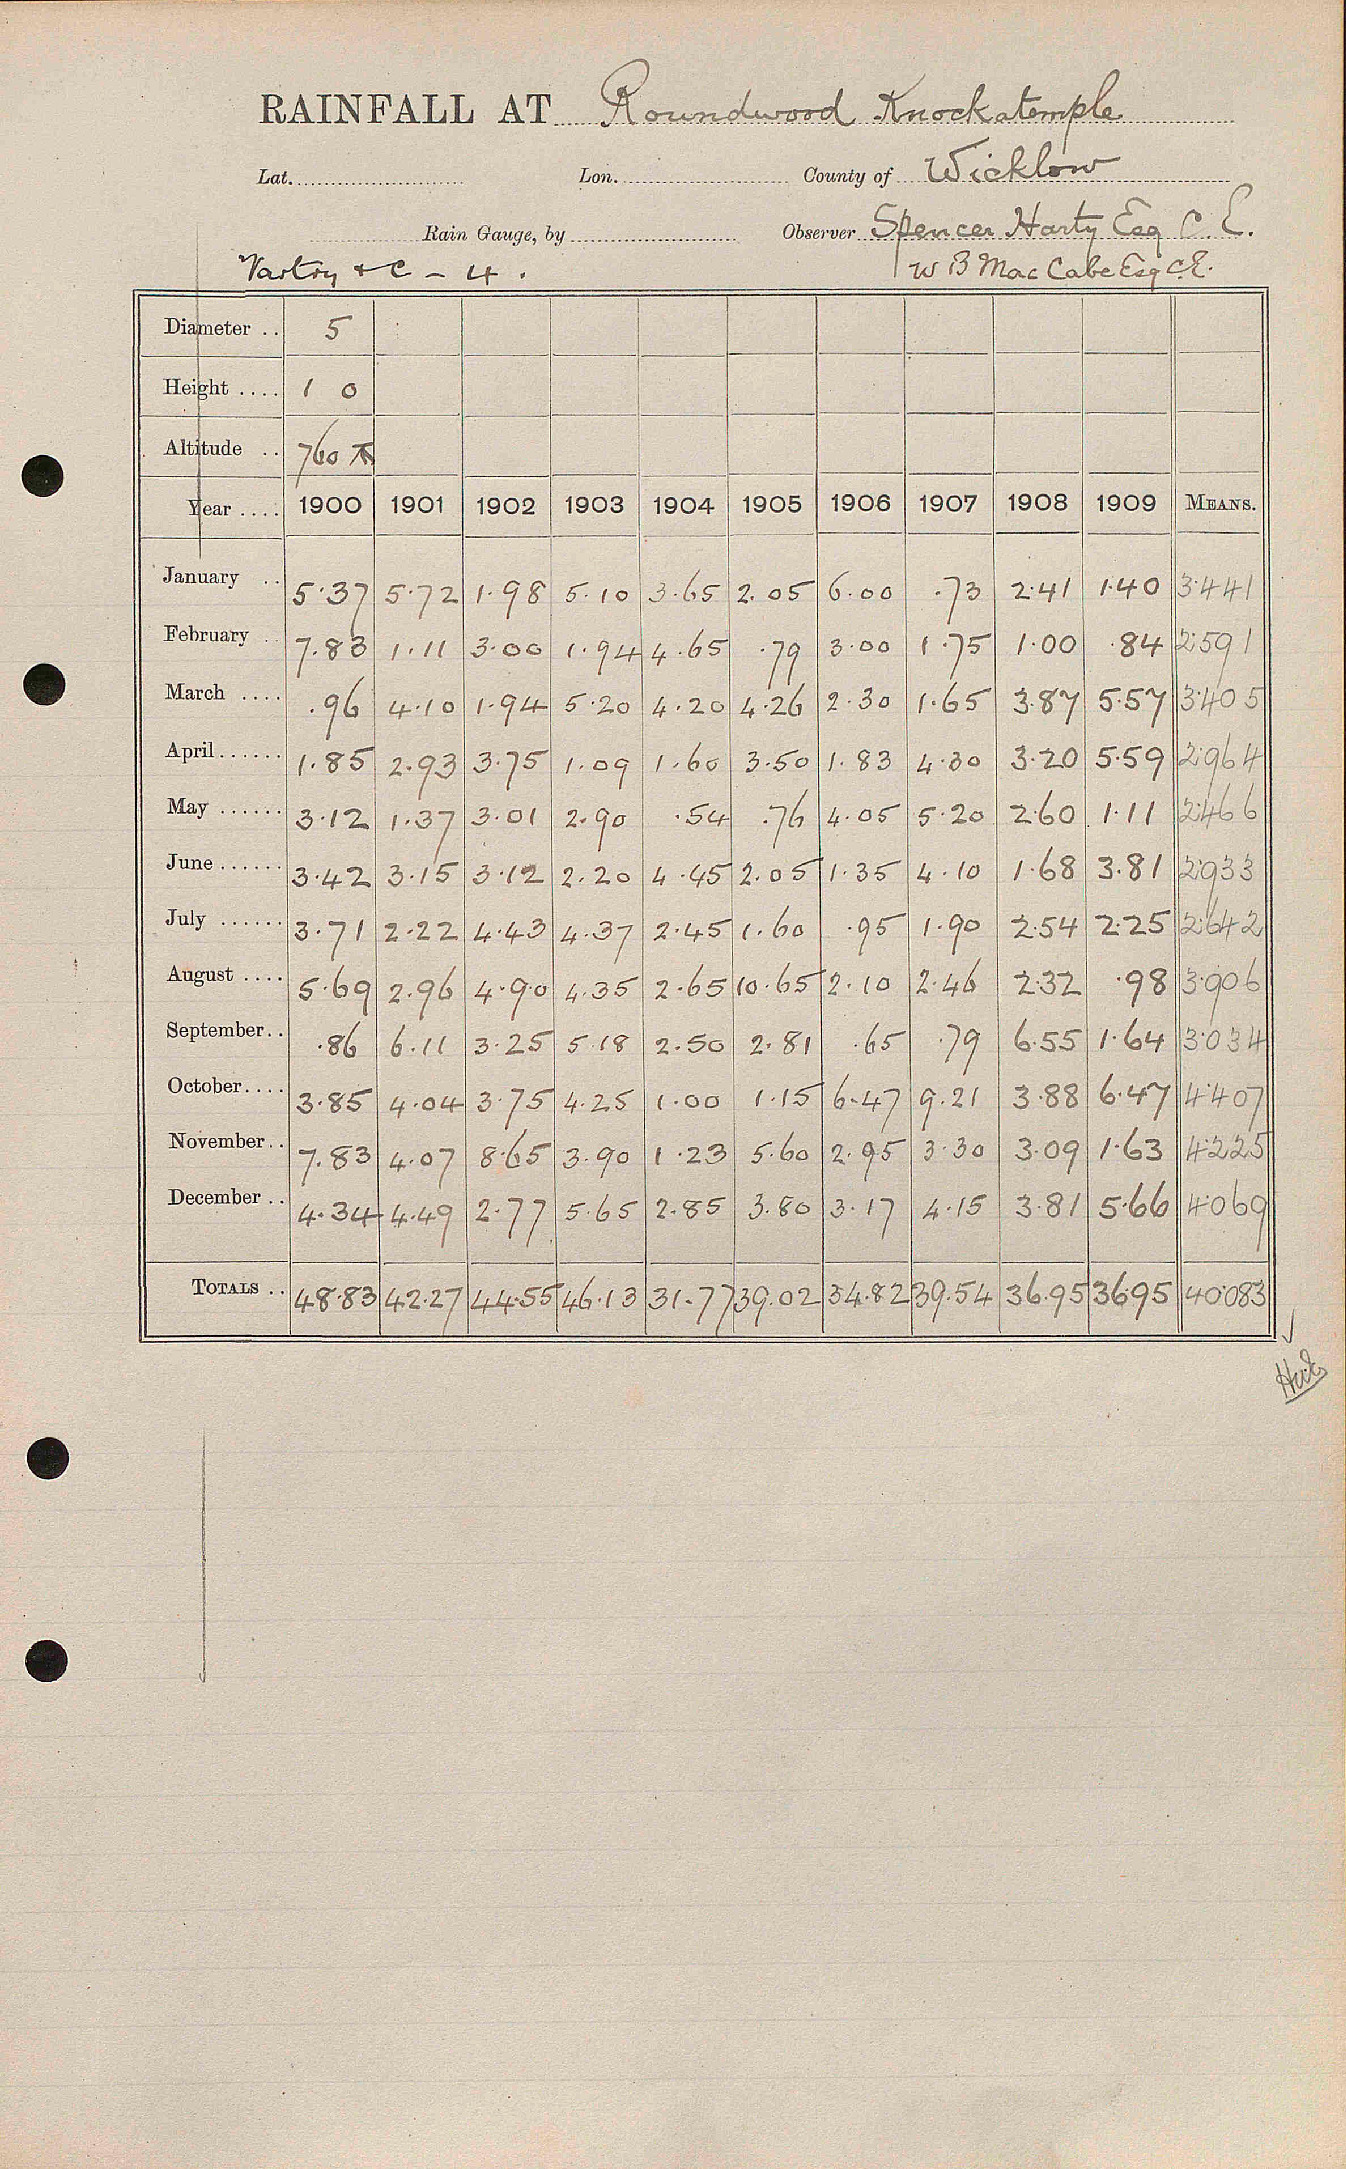 RAINFALL AT Roundwood Knockatemple
Lat. Lon. County of Wicklow
Rain Gauge, by Observer Spencer Harty Esq C. E.
Vartry & C - 4. W B MacCabe Esq C.E.
Diameter .. 5
Height .... 1 0
Altitude .. 760
Year .... 1900 1901 1902 1903 1904 1905 1906 1907 1908 1909 MEANS.
January .. 5.37 5.72 1.98 5.10 3.65 2.05 6.00 .73 2.41 1.40 3.441
February .. 7.83 1.11 3.00 1.94 4.65 .79 3.00 1.75 1.00 .84 2.591
March .... .96 4.10 1.94 5.20 4.20 4.26 2.30 1.65 3.87 5.57 3.405
April...... 1.85 2.93 3.75 1.09 1.60 3.50 1.83 4.30 3.20 5.59 2.964
May ...... 3.12 1.37 3.01 2.90 .54 .76 4.05 5.20 2.60 1.11 2.466
June ...... 3.42 3.15 3.12 2.20 4.45 2.05 1.35 4.10 1.68 3.81 2.933
July ...... 3.71 2.22 4.43 4.37 2.45 1.60 .95 1.90 2.54 2.25 2.642
August .... 5.69 2.96 4.90 4.35 2.65 10.65 2.10 2.46 2.32 .98 3.906
September.. .86 6.11 3.25 5.18 2.50 2.81 .65 .79 6.55 1.64 3.034
October.... 3.85 4.04 3.75 4.25 1.00 1.15 6.47 9.21 3.88 6.47 4.407
November.. 7.83 4.07 8.65 3.90 1.23 5.60 2.95 3.30 3.09 1.63 4.225
December .. 4.34 4.49 2.77 5.65 2.85 3.80 3.17 4.15 3.81 5.66 4.069
TOTALS .. 48.83 42.27 44.55 46.13 31.77 39.02 34.82 39.54 36.95 36.95 40.083